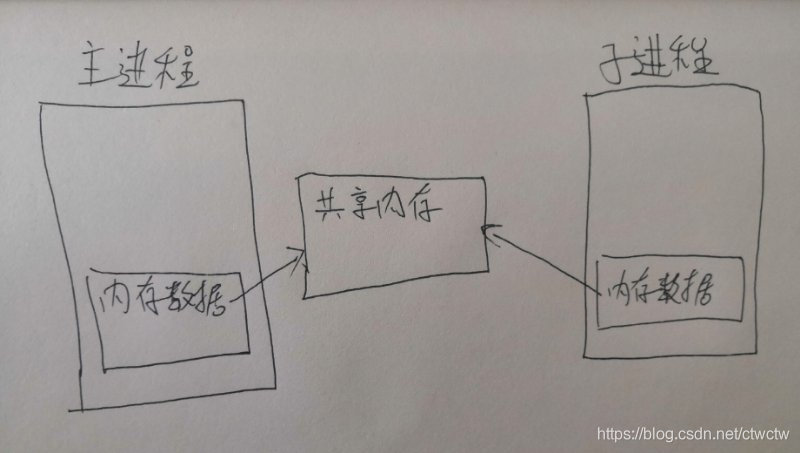 主进程
子进程
共享内存
内存数据
内存数据
https://blog.csdn.net/ctwctw